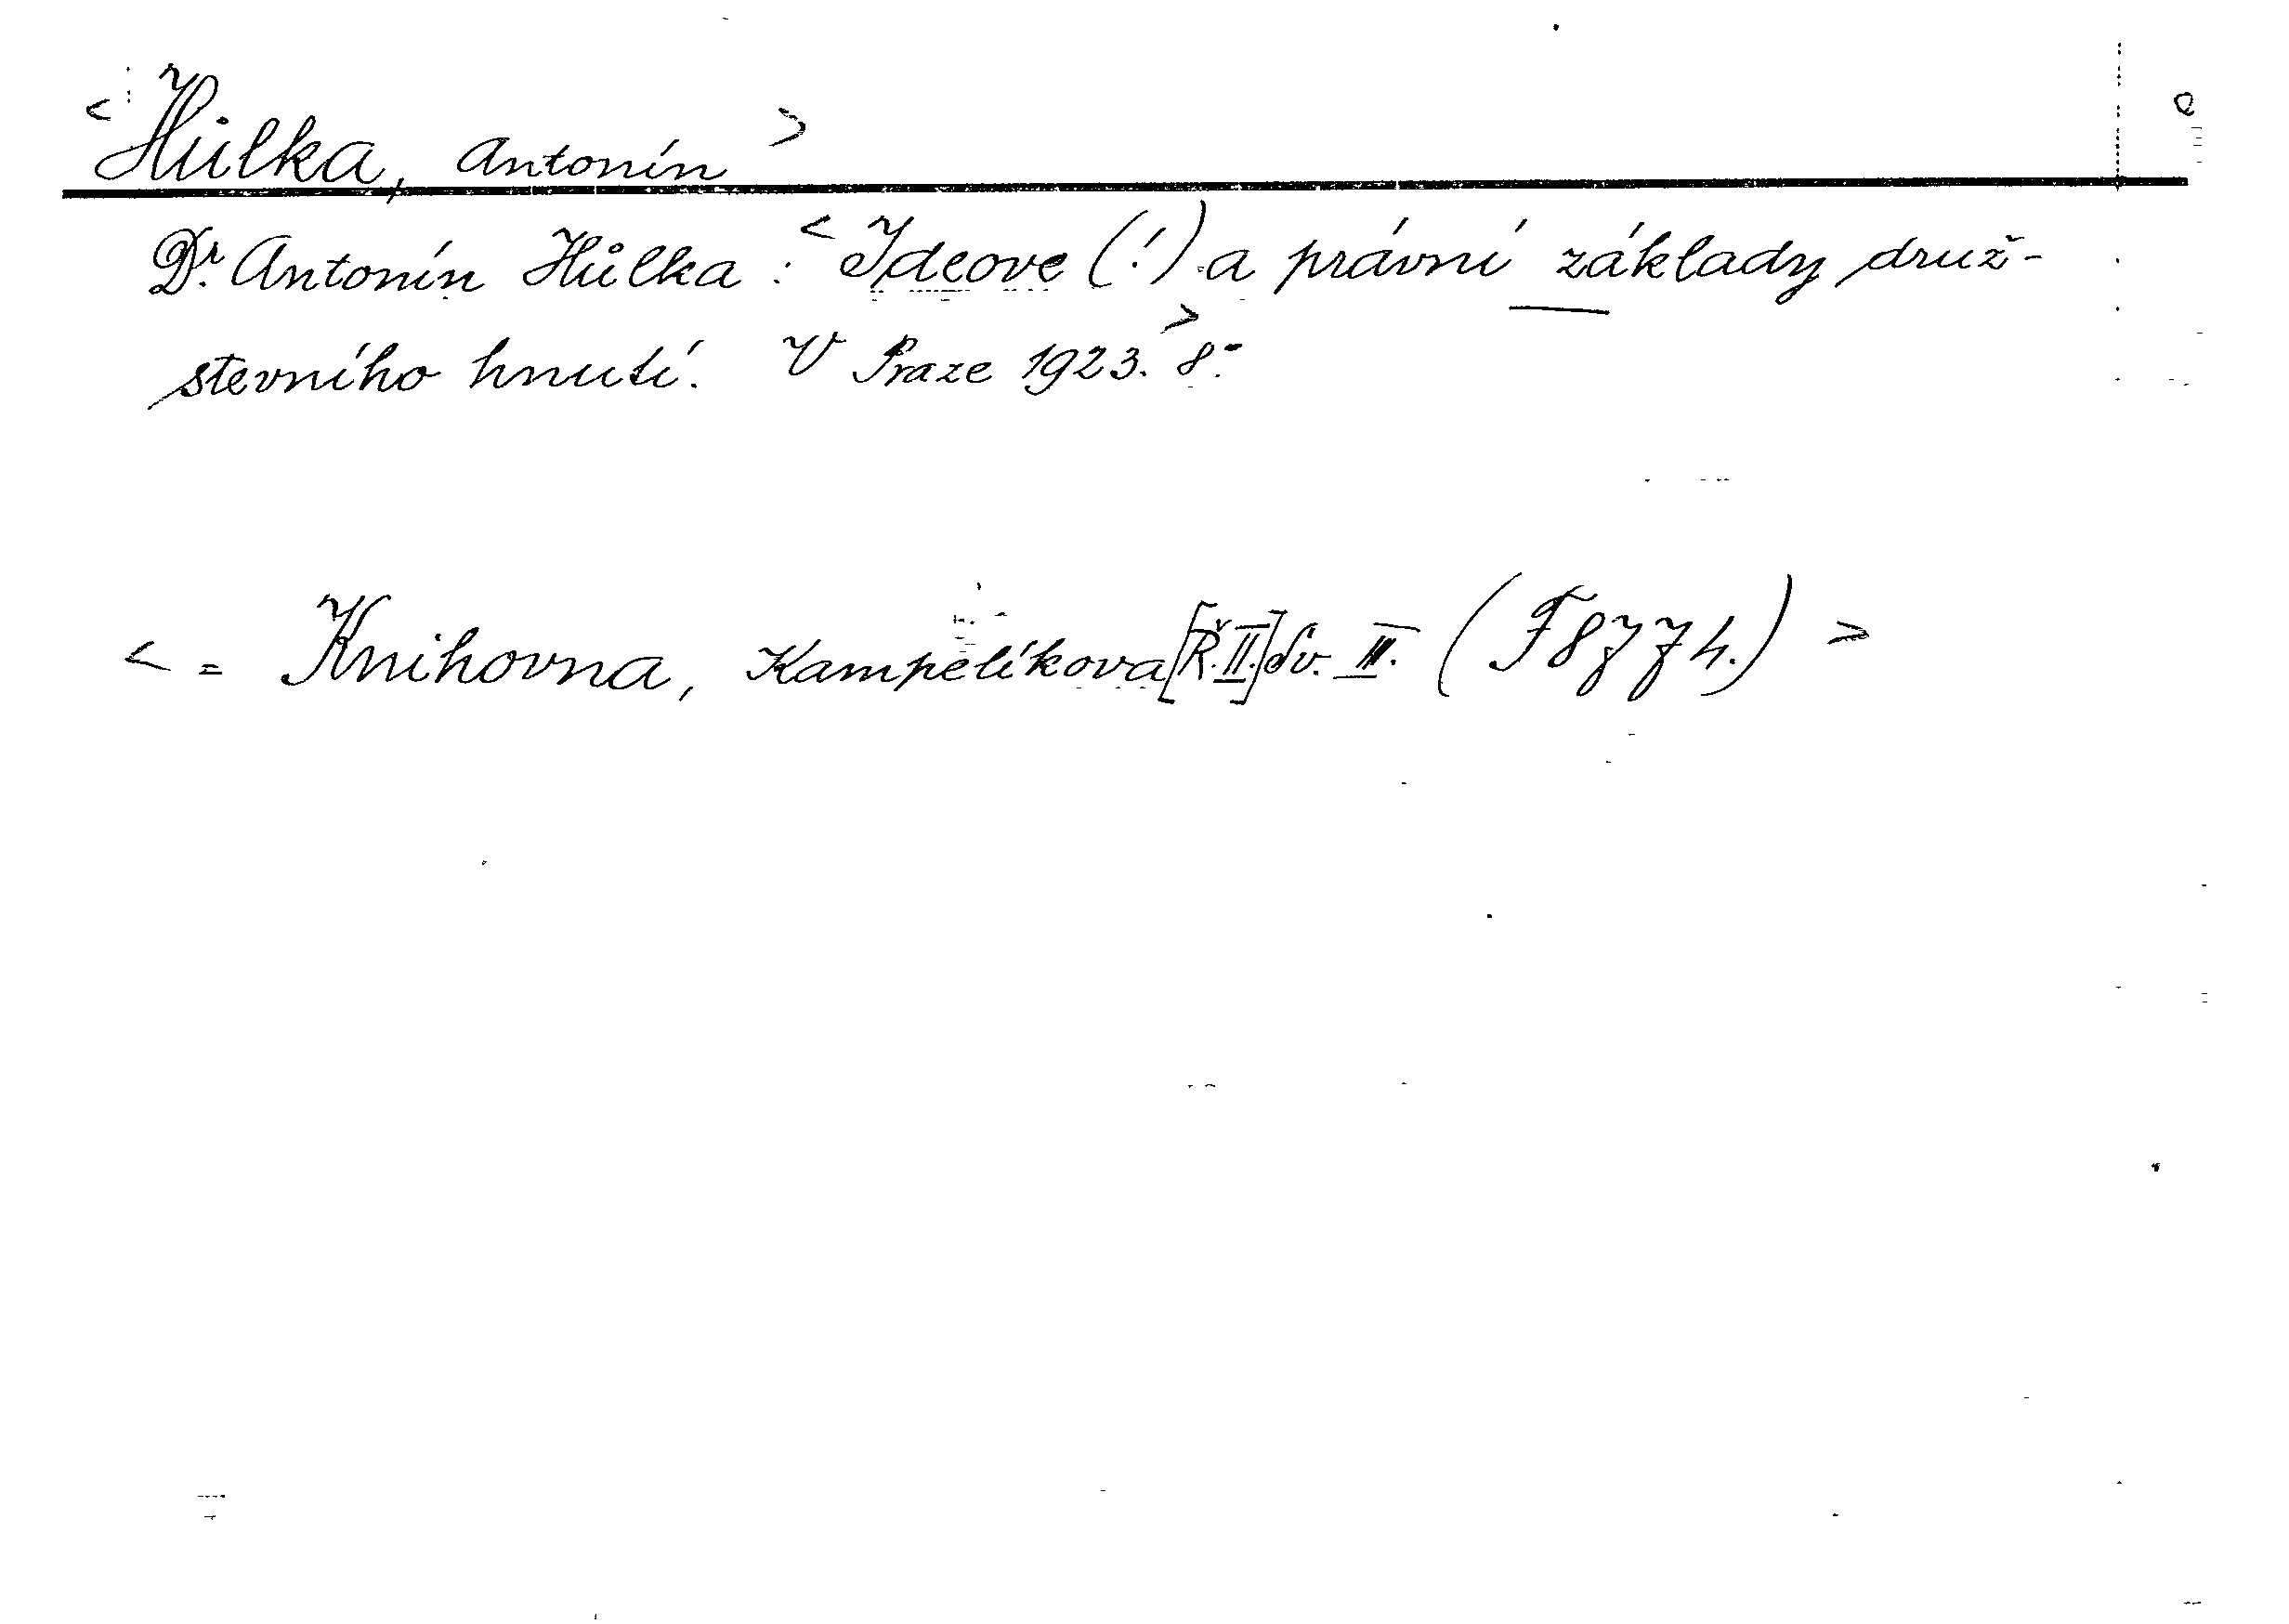 <Hůlka, Antonín>
Dr. Antonín Hůlka: <Ideove (!) a právní základy druž-
stevního hnutí. V Praze 1923.> 8°.
<= Knihovna, Kampelíkova [Ř.II.] Sv. III. (F 8774.)>